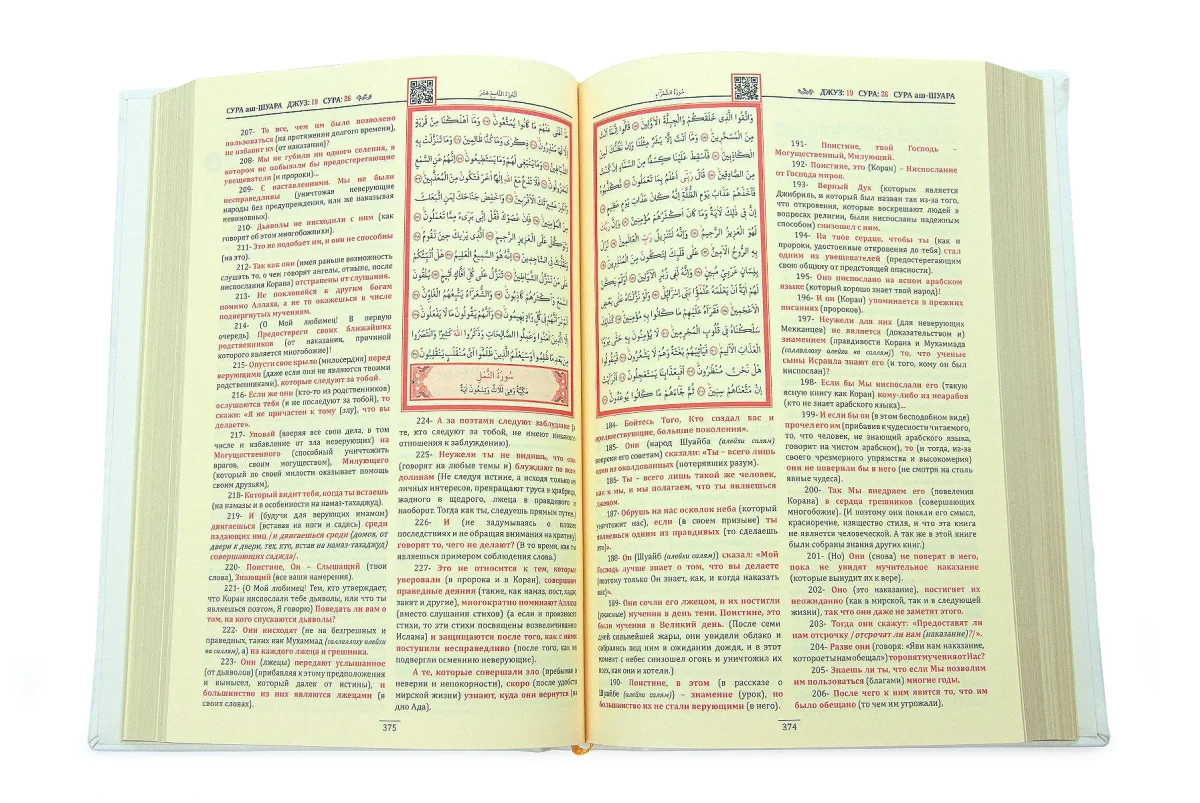 سُورَةُ الشُّعَرَاءِ
ДЖУЗ: 19 СУРА: 26 СУРА аш-ШУАРА
وَاتَّقُوا الَّذِي خَلَقَكُمْ وَالْجِبِلَّةَ الْأَوَّلِينَ قَالُوا إِنَّمَا أَنْتَ
مِنَ الْمُسَحَّرِينَ وَمَا أَنْتَ إِلَّا بَشَرٌ مِثْلُنَا وَإِنْ نَظُنُّكَ لَمِنَ
الْكَاذِبِينَ فَأَسْقِطْ عَلَيْنَا كِسَفًا مِنَ السَّمَاءِ إِنْ كُنْتَ
مِنَ الصَّادِقِينَ قَالَ رَبِّي أَعْلَمُ بِمَا تَعْمَلُونَ فَكَذَّبُوهُ
فَأَخَذَهُمْ عَذَابُ يَوْمِ الظُّلَّةِ إِنَّهُ كَانَ عَذَابَ يَوْمٍ عَظِيمٍ
إِنَّ فِي ذَلِكَ لَآيَةً وَمَا كَانَ أَكْثَرُهُمْ مُؤْمِنِينَ وَإِنَّ رَبَّكَ
لَهُوَ الْعَزِيزُ الرَّحِيمُ وَإِنَّهُ لَتَنْزِيلُ رَبِّ الْعَالَمِينَ نَزَلَ
بِهِ الرُّوحُ الْأَمِينُ عَلَى قَلْبِكَ لِتَكُونَ مِنَ الْمُنْذِرِينَ
بِلِسَانٍ عَرَبِيٍّ مُبِينٍ وَإِنَّهُ لَفِي زُبُرِ الْأَوَّلِينَ أَوَلَمْ يَكُنْ
لَهُمْ آيَةً أَنْ يَعْلَمَهُ عُلَمَاءُ بَنِي إِسْرَائِيلَ وَلَوْ نَزَّلْنَاهُ عَلَى بَعْضِ
الْأَعْجَمِينَ فَقَرَأَهُ عَلَيْهِمْ مَا كَانُوا بِهِ مُؤْمِنِينَ كَذَلِكَ
سَلَكْنَاهُ فِي قُلُوبِ الْمُجْرِمِينَ لَا يُؤْمِنُونَ بِهِ حَتَّى يَرَوُا
الْعَذَابَ الْأَلِيمَ فَيَأْتِيَهُمْ بَغْتَةً وَهُمْ لَا يَشْعُرُونَ فَيَقُولُوا
هَلْ نَحْنُ مُنْظَرُونَ أَفَبِعَذَابِنَا يَسْتَعْجِلُونَ أَفَرَأَيْتَ
إِنْ مَتَّعْنَاهُمْ سِنِينَ ثُمَّ جَاءَهُمْ مَا كَانُوا يُوعَدُونَ
184- Бойтесь Того, Кто создал вас и
предшествующие, большие поколения».
185- Они (народ Шуайба (алейхи салям)
вопреки его советам) сказали: «Ты – всего лишь
один из околдованных (потерявших разум).
186- Ты – всего лишь такой же человек,
как и мы, и мы полагаем, что ты являешься
лжецом.
187- Обрушь на нас осколок неба (который
уничтожит нас), если (в своем призыве) ты
являешься одним из правдивых (то сделаешь
это)».
188- Он (Шуайб (алейхи салям)) сказал: «Мой
Господь лучше знает о том, что вы делаете
(поэтому только Он знает, как, и когда наказать
вас)».
189- Они сочли его лжецом, и их постигли
(ужасные) мучения в день тени. Поистине, это
были мучения в Великий день. (После семи
дней сильнейшей жары, они увидели облако и
собрались под ним в ожидании дождя, и в этот
момент с небес снизошел огонь и уничтожил их
всех, как они и хотели.)
190- Поистине, в этом (в рассказе о
Шуайбе (алейхи салям)) – знамение (урок), но
большинство их не стали верующими (в него).
191- Поистине, твой Господь –
Могущественный, Милующий.
192- Поистине, это (Коран) – Ниспослание
от Господа миров.
193- Верный Дух (которым является
Джибриль, и который был назван так из-за того,
что откровения, которые воскрешают людей в
вопросах религии, были ниспосланы надежным
способом) снизошел с ним.
194- На твое сердце, чтобы ты (как и
пророки, удостоенные откровения до тебя) стал
одним из увещевателей (предостерегающим
свою общину от предстоящей опасности).
195- Оно ниспослано на ясном арабском
языке (который хорошо знает твой народ)!
196- И он (Коран) упоминается в прежних
писаниях (пророков).
197- Неужели для них (для неверующих
Мекканцев) не является (доказательством и)
знамением (правдивости Корана и Мухаммада
(саллаллаху алейхи ва саллям)) то, что ученые
сыны Исраила знают его (и того, кому он был
ниспослан)?
198- Если бы Мы ниспослали его (такую
ясную книгу как Коран) кому-либо из неарабов
(кто не знает арабского языка)...
199- И если бы он (в этом бесподобном виде)
прочел его им (прибавив к чудесности читаемого,
то, что человек, не знающий арабского языка,
говорит на чистом арабском), то (и тогда, из-за
своего чрезмерного упрямства и высокомерия)
они не поверили бы в него (не смотря на столь
явные чудеса).
200- Так Мы внедряем его (повеления
Корана) в сердца грешников (совершающих
многобожие). (И поэтому они поняли его смысл,
красноречие, изящество стиля, и что эта книга
не является человеческой. А так же в этой книге
были собраны знания других книг.)
201- (Но) Они (снова) не поверят в него,
пока не увидят мучительное наказание
(которые вынудит их к вере).
202- Оно (это наказание), постигнет их
неожиданно (как в мирской, так и в следующей
жизни), так что они даже не заметят этого.
203- Тогда они скажут: «Предоставят ли
нам отсрочку /отсрочат ли нам (наказание)?/».
204- Разве они (говоря: «Яви нам наказание,
которое ты нам обещал») торопят мучения от Нас?
205- Знаешь ли ты, что если Мы позволим
им пользоваться (благами) многие годы,
206- После чего к ним явится то, что им
было обещано (то чем им угрожали),
374
СУРА аш-ШУАРА ДЖУЗ: 19 СУРА: 26
اَلْجُزْءُ التَّاسِعَ عَشَرَ
207- То все, чем им было позволено
пользоваться (на протяжении долгого времени),
не избавит их (от наказания)?
208- Мы не губили ни одного селения, в
котором не побывали бы предостерегающие
увещеватели (и пророки)...
209- С наставлениями. Мы не были
несправедливы (уничтожая неверующие
народы без предупреждения, или же наказывая
невиновных).
210- Дьяволы не нисходили с ним (как
говорят об этом многобожники).
211- Это не подобает им, и они не способны
(на это).
212- Так как они (имея раньше возможность
слушать то, о чем говорят ангелы, отныне, после
ниспослания Корана) отстранены от слушания.
213- Не поклоняйся к другим богам
помимо Аллаха, а не то окажешься в числе
подвергнутых мучениям.
214- (О Мой любимец! В первую
очередь) Предостереги своих ближайших
родственников (от наказания, причиной
которого является многобожие)!
215- Опусти свое крыло (милосердия) перед
верующими (даже если они не являются твоими
родственниками), которые следуют за тобой.
216- Если же они (кто-то из родственников)
ослушаются тебя (и не последуют за тобой), то
скажи: «Я не причастен к тому (злу), что вы
делаете».
217- Уповай (вверяя все свои дела, в том
числе и избавление от зла неверующих) на
Могущественного (способный уничтожить
врагов, своим могуществом), Милующего
(который по своей милости оказывает помощь
своим друзьям),
218- Который видит тебя, когда ты встаешь
(на намазы и в особенности на намаз-тахаджуд).
219- И (будучи для верующих имамом)
двигаешься (вставая на ноги и садясь) среди
падающих ниц /и двигаешься среди (домов, от
двери к двери, тех, кто, встав на намаз-тахаджуд)
совершающих саджда/.
220- Поистине, Он – Слышащий (твои
слова), Знающий (все ваши намерения).
221- (О Мой любимец! Тем, кто утверждает,
что Коран ниспослали тебе дьяволы, или что ты
являешься поэтом, Я говорю) Поведать ли вам о
том, на кого спускаются дьяволы?
222- Они нисходят (не на безгрешных и
праведных, таких как Мухаммад (саллаллаху алейхи
ва саллям), а) на каждого лжеца и грешника.
223- Они (лжецы) передают услышанное
(от дьяволов) (прибавляя к этому предположения
и вымысел, который далек от истины), и
большинство из них являются лжецами (в
своих словах).
مَا أَغْنَى عَنْهُمْ مَا كَانُوا يُمَتَّعُونَ وَمَا أَهْلَكْنَا مِنْ قَرْيَةٍ
إِلَّا لَهَا مُنْذِرُونَ ذِكْرَى وَمَا كُنَّا ظَالِمِينَ وَمَا تَنَزَّلَتْ بِهِ
الشَّيَاطِينُ وَمَا يَنْبَغِي لَهُمْ وَمَا يَسْتَطِيعُونَ إِنَّهُمْ عَنِ السَّمْعِ
لَمَعْزُولُونَ فَلَا تَدْعُ مَعَ اللَّهِ إِلَهًا آخَرَ فَتَكُونَ مِنَ الْمُعَذَّبِينَ
وَأَنْذِرْ عَشِيرَتَكَ الْأَقْرَبِينَ وَاخْفِضْ جَنَاحَكَ لِمَنِ اتَّبَعَكَ
مِنَ الْمُؤْمِنِينَ فَإِنْ عَصَوْكَ فَقُلْ إِنِّي بَرِيءٌ مِمَّا تَعْمَلُونَ
وَتَوَكَّلْ عَلَى الْعَزِيزِ الرَّحِيمِ الَّذِي يَرَاكَ حِينَ تَقُومُ
وَتَقَلُّبَكَ فِي السَّاجِدِينَ إِنَّهُ هُوَ السَّمِيعُ الْعَلِيمُ هَلْ أُنَبِّئُكُمْ
عَلَى مَنْ تَنَزَّلُ الشَّيَاطِينُ تَنَزَّلُ عَلَى كُلِّ أَفَّاكٍ أَثِيمٍ يُلْقُونَ
السَّمْعَ وَأَكْثَرُهُمْ كَاذِبُونَ وَالشُّعَرَاءُ يَتَّبِعُهُمُ الْغَاوُونَ
أَلَمْ تَرَ أَنَّهُمْ فِي كُلِّ وَادٍ يَهِيمُونَ وَأَنَّهُمْ يَقُولُونَ مَا لَا يَفْعَلُونَ
إِلَّا الَّذِينَ آمَنُوا وَعَمِلُوا الصَّالِحَاتِ وَذَكَرُوا اللَّهَ كَثِيرًا وَانْتَصَرُوا
مِنْ بَعْدِ مَا ظُلِمُوا وَسَيَعْلَمُ الَّذِينَ ظَلَمُوا أَيَّ مُنْقَلَبٍ يَنْقَلِبُونَ
سُورَةُ النَّمْلِ
مَكِّيَّةٌ وَهِيَ ثَلَاثٌ وَتِسْعُونَ آيَةً
224- А за поэтами следуют заблудшие (а
те, кто следуют за тобой, не имеют никакого
отношения к заблуждению).
225- Неужели ты не видишь, что они
(говорят на любые темы и) блуждают по всем
долинам (Не следуя истине, а исходя только из
личных интересов, превращают труса в храбреца,
жадного в щедрого, лжеца в правдивого и
наоборот. Тогда как ты, следуешь прямым путем.)
226- И (не задумываясь о плохих
последствиях и не обращая внимания на критику)
говорят то, чего не делают? (В то время, как ты
являешься примером соблюдения слова.)
227- Это не относится к тем, которые
уверовали (в пророка и в Коран), совершают
праведные деяния (такие, как намаз, пост, хадж,
закят и другие), многократно поминают Аллаха
(вместо слушания стихов) (а если и произносят
стихи, то эти стихи посвящены возвеличиванию
Ислама) и защищаются после того, как с ними
поступили несправедливо (после того, как их
подвергли осмеянию неверующие).
А те, которые совершали зло (пребывая в
неверии и непокорности), скоро (после удобств
мирской жизни) узнают, куда они вернутся (на
дно Ада).
375